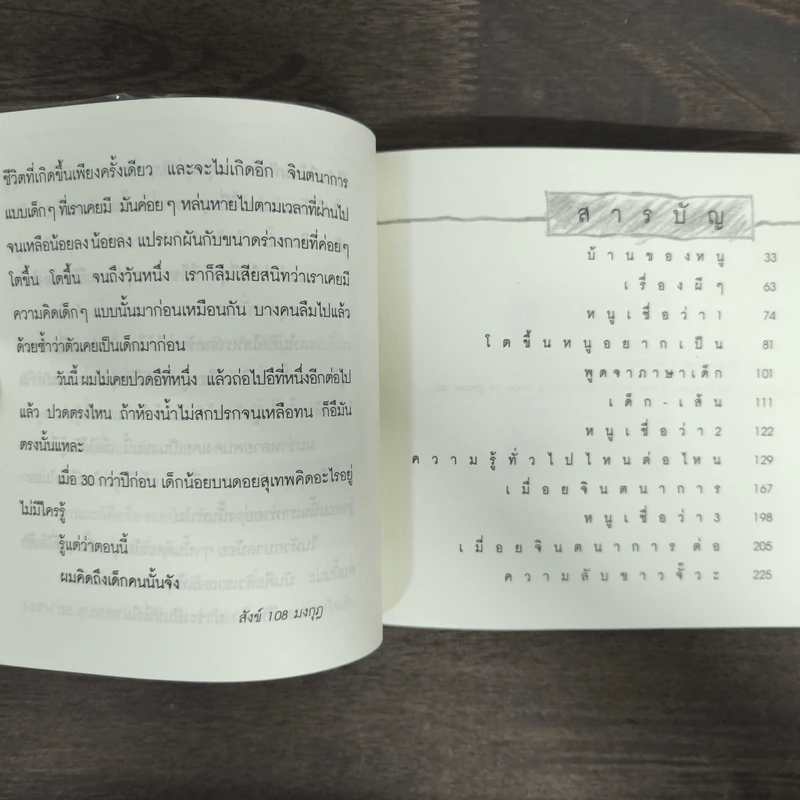 ชีวิตที่เกิดขึ้นเพียงครั้งเดียว และจะไม่เกิดอีก จินตนาการ
แบบเด็กๆ ที่เราเคยมี มันค่อยๆ หล่นหายไปตามเวลาที่ผ่านไป
จนเหลือน้อยลง น้อยลง แปรผกผันกับขนาดร่างกายที่ค่อยๆ
โตขึ้น โตขึ้น จนถึงวันหนึ่ง เราก็ลืมเสียสนิทว่าเราเคยมี
ความคิดเด็กๆ แบบนั้นมาก่อนเหมือนกัน บางคนลืมไปแล้ว
ด้วยซ้ำว่าตัวเคยเป็นเด็กมาก่อน
วันนี้ ผมไม่เคยปวดอึที่หนึ่ง แล้วถ่อไปอึที่หนึ่งอีกต่อไป
แล้ว ปวดตรงไหน ถ้าห้องน้ำไม่สกปรกจนเหลือทน ก็อึมัน
ตรงนั้นแหละ
เมื่อ 30 กว่าปีก่อน เด็กน้อยบนดอยสุเทพคิดอะไรอยู่
ไม่มีใครรู้
รู้แต่ว่าตอนนี้
ผมคิดถึงเด็กคนนั้นจัง
สังข์ 108 มงกุฎ
สารบัญ
บ้านของหนู 33
เรื่องผีๆ 63
หนูเชื่อว่า1 74
โตขึ้นหนูอยากเป็น 81
พูดจาภาษาเด็ก 101
เด็ก-เส้น 111
หนูเชื่อว่า2 122
ความรู้ทั่วไปไหนต่อไหน 129
เมื่อยจินตนาการ 167
หนูเชื่อว่า3 198
เมื่อยจินตนาการต่อ 205
ความลับขาวจั๊วะ 225